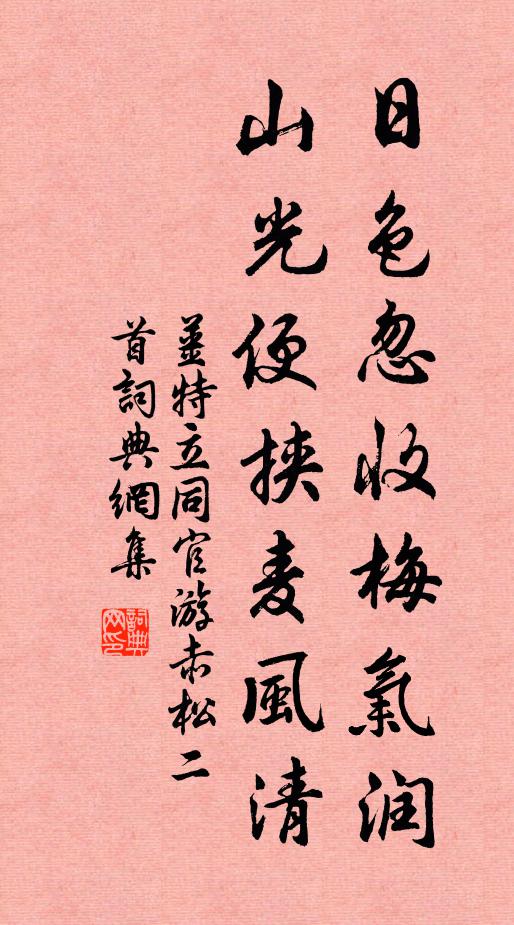 日色忽收梅氣润
山光便挾麦風清
姜特立同官游赤松二
首詞典網集
詞典网印